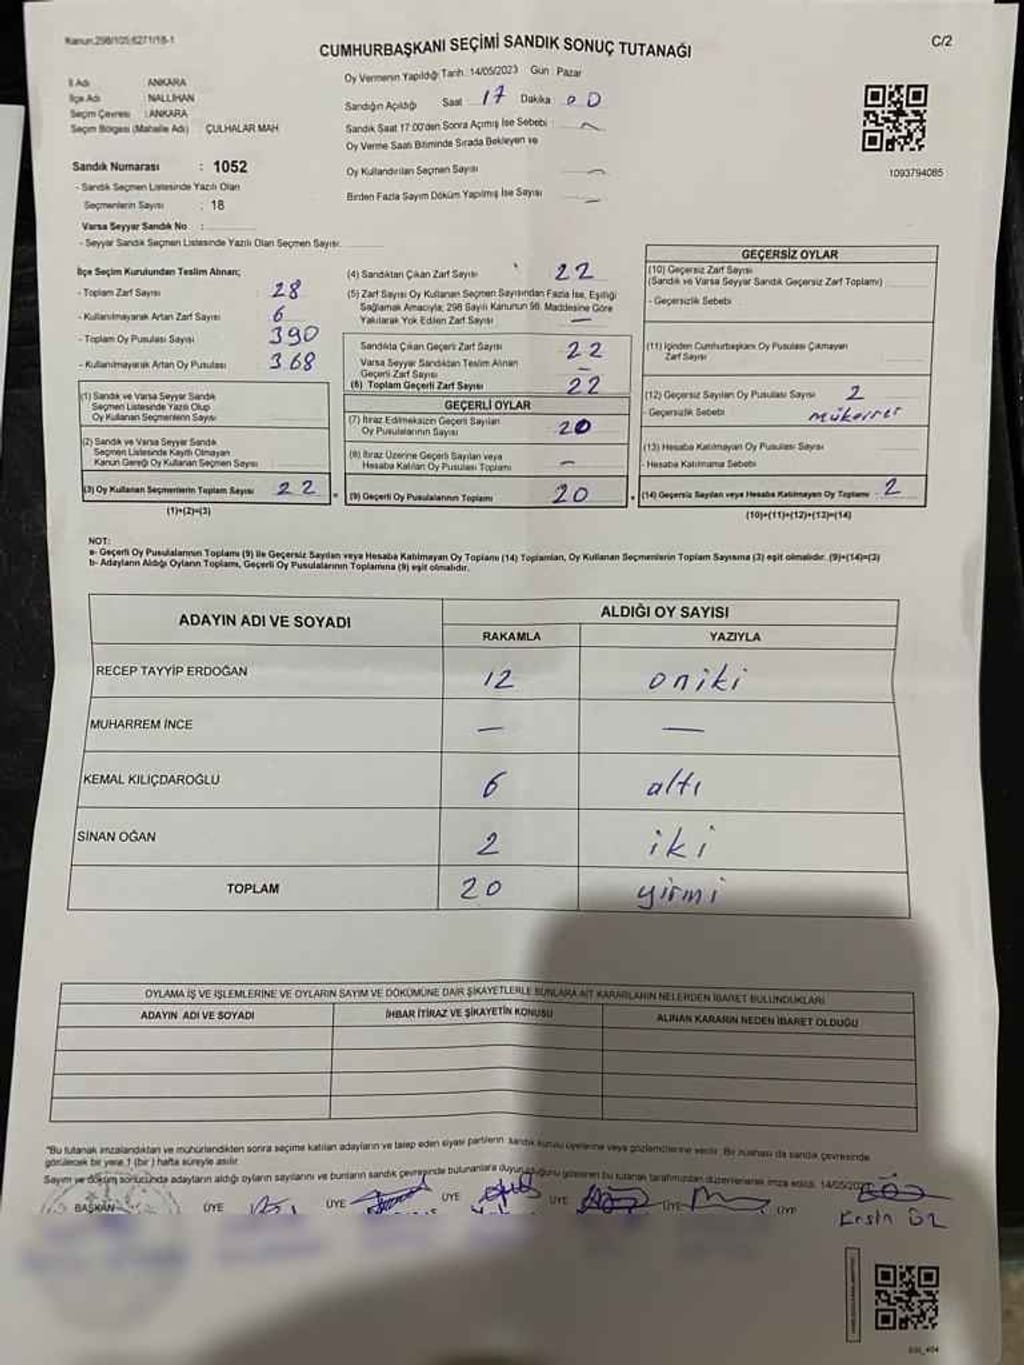 Kanun:298/105;6271/18-1
CUMHURBAŞKANI SEÇİMİ SANDIK SONUÇ TUTANAĞI
C/2
İl Adı ANKARA
İlçe Adı : NALLIHAN
Seçim Çevresi : ANKARA
Seçim Bölgesi (Mahalle Adı) ÇULHALAR MAH
Sandık Numarası : 1052
- Sandık Seçmen Listesinde Yazılı Olan
Seçmenlerin Sayısı : 18
Varsa Seyyar Sandık No :
- Seyyar Sandık Seçmen Listesinde Yazılı Olan Seçmen Sayısı:
Oy Vermenin Yapıldığı Tarih :14/05/2023 Gün : Pazar
Sandığın Açıldığı Saat 17 Dakika 00
Sandık Saat 17:00'den Sonra Açımış İse Sebebi :
Oy Verme Saati Bitiminde Sırada Bekleyen ve
Oy Kullandırılan Seçmen Sayısı
Birden Fazla Sayım Döküm Yapılmış İse Sayısı
1093794085
İlçe Seçim Kurulundan Teslim Alınan;
- Toplam Zarf Sayısı 28
- Kullanılmayarak Artan Zarf Sayısı : 6
- Toplam Oy Pusulası Sayısı 390
- Kullanılmayarak Artan Oy Pusulası 368
(1) Sandık ve Varsa Seyyar Sandık
Seçmen Listesinde Yazılı Olup
Oy Kullanan Seçmenlerin Sayısı
(2) Sandık ve Varsa Seyyar Sandık
Seçmen Listesinde Kayıtlı Olmayan
Kanun Gereği Oy Kullanan Seçmen Sayısı
(3) Oy Kullanan Seçmenlerin Toplam Sayısı 22
(1)+(2)=(3)
(4) Sandıktan Çıkan Zarf Sayısı : 22
(5) Zarf Sayısı Oy Kullanan Seçmen Sayısından Fazla İse, Eşitliği
Sağlamak Amacıyla; 298 Sayılı Kanunun 98. Maddesine Göre
Yakılarak Yok Edilen Zarf Sayısı : —
Sandıkta Çıkan Geçerli Zarf Sayısı 22
Varsa Seyyar Sandıktan Teslim Alınan
Geçerli Zarf Sayısı —
(6) Toplam Geçerli Zarf Sayısı 22
GEÇERLİ OYLAR
(7) İtiraz Edilmeksizin Geçerli Sayılan
Oy Pusulalarının Sayısı 20
(8) İtiraz Üzerine Geçerli Sayılan veya
Hesaba Katılan Oy Pusulası Toplamı —
(9) Geçerli Oy Pusulalarının Toplamı 20
GEÇERSİZ OYLAR
(10) Geçersiz Zarf Sayısı
(Sandık ve Varsa Seyyar Sandık Geçersiz Zarf Toplamı)
- Geçersizlik Sebebi
(11) İçinden Cumhurbaşkanı Oy Pusulası Çıkmayan
Zarf Sayısı
(12) Geçersiz Sayılan Oy Pusulası Sayısı : 2
- Geçersizlik Sebebi mükerrer
(13) Hesaba Katılmayan Oy Pusulası Sayısı
- Hesaba Katılmama Sebebi
(14) Geçersiz Sayılan veya Hesaba Katılmayan Oy Toplamı 2
(10)+(11)+(12)+(13)=(14)
NOT:
a- Geçerli Oy Pusulalarının Toplamı (9) ile Geçersiz Sayılan veya Hesaba Katılmayan Oy Toplamı (14) Toplamları, Oy Kullanan Seçmenlerin Toplam Sayısına (3) eşit olmalıdır. (9)+(14)=(3)
b- Adayların Aldığı Oyların Toplamı, Geçerli Oy Pusulalarının Toplamına (9) eşit olmalıdır.
ADAYIN ADI VE SOYADI ALDIĞI OY SAYISI
RAKAMLA YAZIYLA
RECEP TAYYİP ERDOĞAN 12 oniki
MUHARREM İNCE — —
KEMAL KILIÇDAROĞLU 6 altı
SİNAN OĞAN 2 iki
TOPLAM 20 yirmi
OYLAMA İŞ VE İŞLEMLERİNE VE OYLARIN SAYIM VE DÖKÜMÜNE DAİR ŞİKAYETLERLE BUNLARA AİT KARARLARIN NELERDEN İBARET BULUNDUKLARI
ADAYIN ADI VE SOYADI İHBAR İTİRAZ VE ŞİKAYETİN KONUSU ALINAN KARARIN NEDEN İBARET OLDUĞU
"Bu tutanak imzalandıktan ve mühürlendikten sonra seçime katılan adayların ve talep eden siyasi partilerin sandık kurulu üyelerine veya gözlemcilerine verilir. Bir nushası da sandık çevresinde
görülecek bir yere 1 (bir) hafta süreyle asılır.
Sayım ve döküm sonucunda adayların aldığı oyların sayılarını ve bunların sandık çevresinde bulunanlara duyurulduğunu gösteren bu tutanak tarafımızdan düzenlenerek imza edildi.
BAŞKAN ÜYE ÜYE ÜYE ÜYE ÜYE ÜYE
Ersin ÖZ